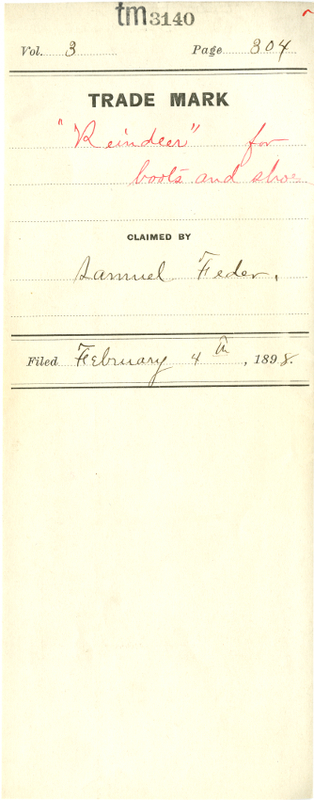 tm3140
Vol. 3 Page 304
TRADE MARK
"Reindeer" for
boots and shoe
CLAIMED BY
Samuel Feder.
Filed February 4th, 1898.